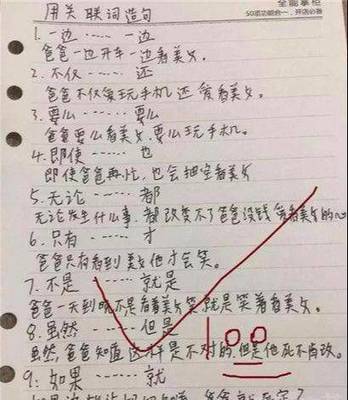 全能掌柜
50项功能合一,开店必备
用关联词造句
1.一边……一边
爸爸一边开车一边看美女。
2.不仅……还
爸爸不仅爱玩手机还爱看美女。
3.要么……要么
爸爸要么看美女,要么玩手机。
4.即使……也
即使爸爸再忙,也会抽空看美女
5.无论……都
无论发生什么事,都改变不了爸爸没钱爱看美女的心
6.只有……才
爸爸只有看到美女他才会笑。
7.不是……就是
爸爸一天到晚不是看着美女笑就是笑着看美女。
8.虽然……但是
虽然,爸爸知道这样是不对的,但是他死不肯改。
100
9.如果……就